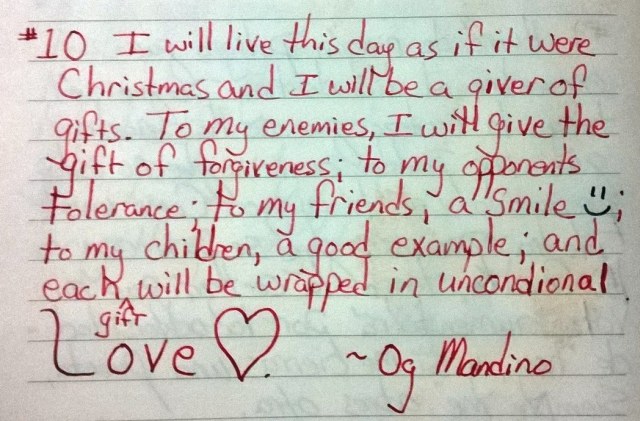 #10 I will live this day as if it were
Christmas and I will be a giver of
gifts. To my enemies, I will give the
gift of forgiveness; to my opponents
tolerance; to my friends, a smile;
to my children, a good example; and
each will be wrapped in uncondional
^
gift
Love ♡. ~ Og Mandino